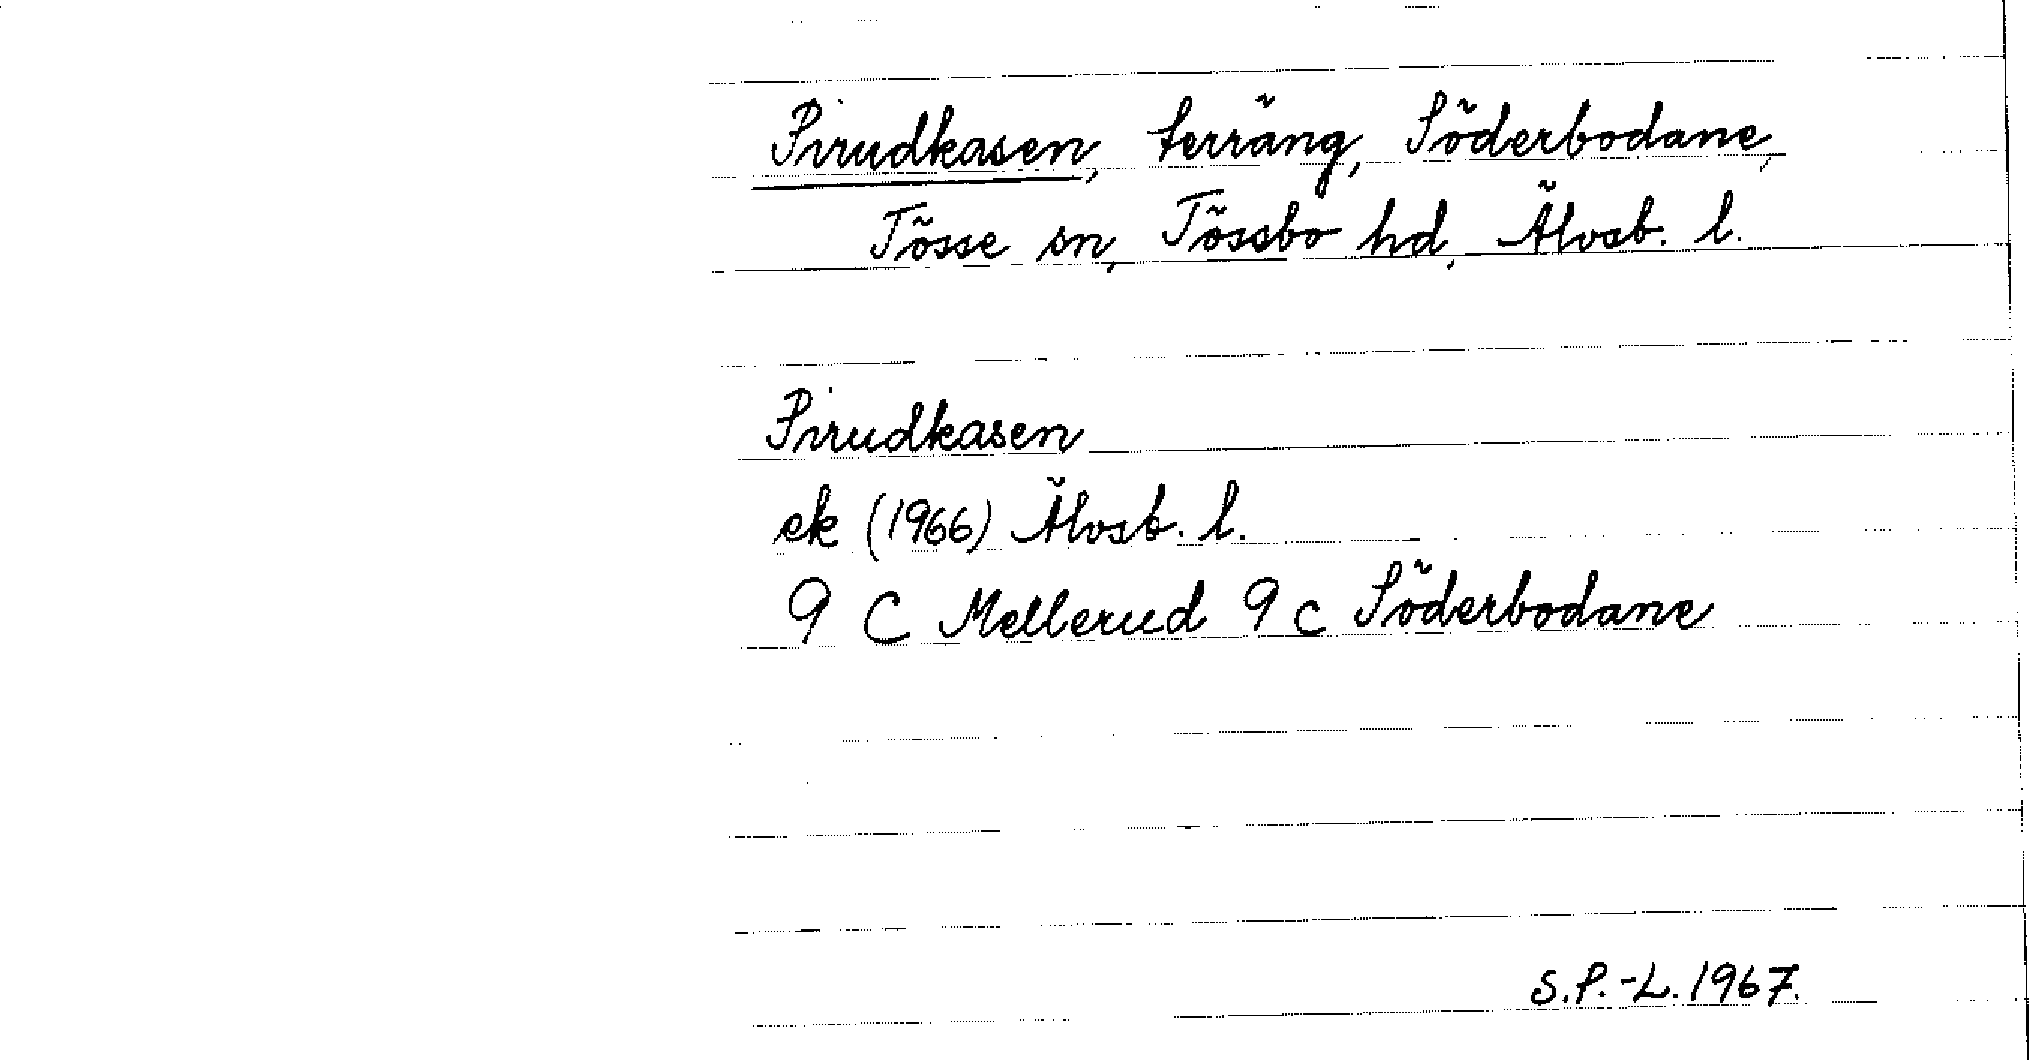 Pirudkasen, terräng, Söderbodane,
Tösse sn, Tössbo hd, Älvsb. l.
Pirudkasen
ek (1966) Älvsb. l.
9 C Mellerud 9 c Söderbodane
S.P.-L. 1967.